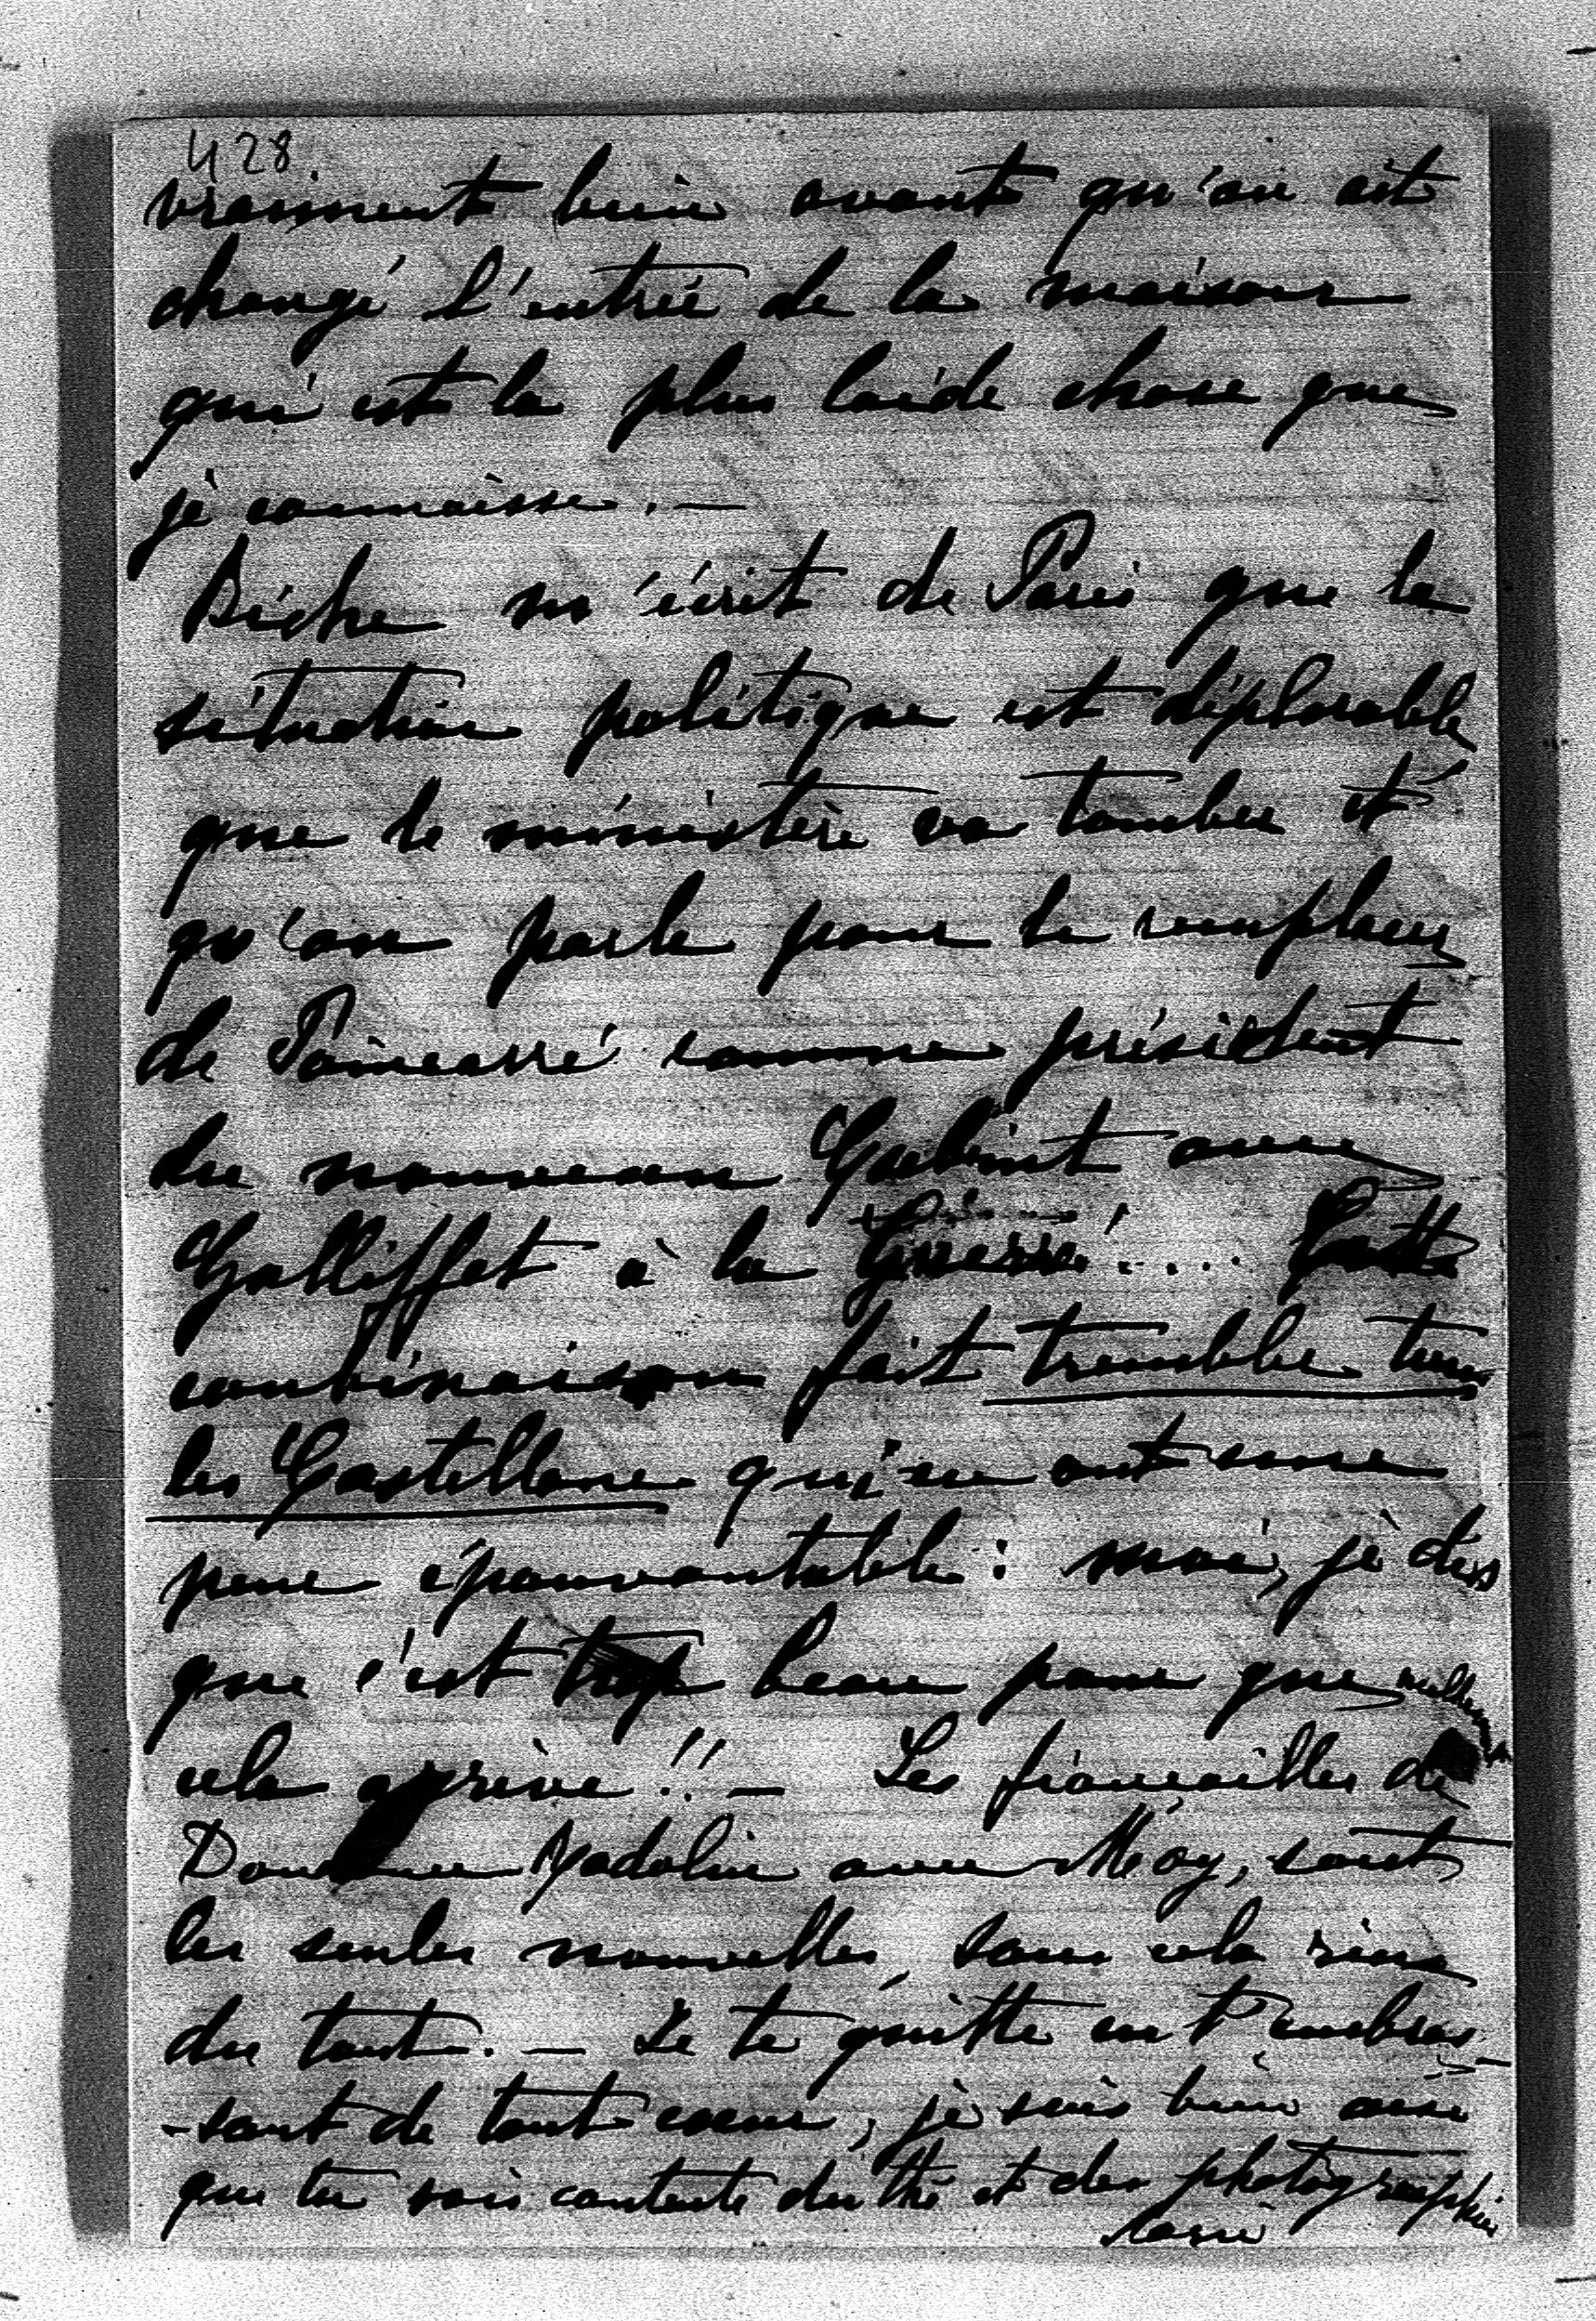 428.
vraiment bien avant qu'on ait
changé l'entrée de la maison
qui est la plus laide chose que
je connaisse. —
Biche m'écrit de Paris que la
situation politique est déplorable
que le ministère va tomber et
qu'on parle pour le remplacer
de Poincarré comme président
du nouveau Cabinet avec
Galliffet à la Guerre!.... Cette
combinaison fait trembler tous
les Castellane qui en ont une
peur épouvantable: moi, je dis
que c'est trop beau pour que
cela arrive!! — Les fiançailles de
Yadolin avec May, sont
les seules nouvelles, sans cela rien
du tout. — Je te quitte en t'embras-
-sant de tout cœur, je suis bien aise
que tu sois contente du thé et des photographies